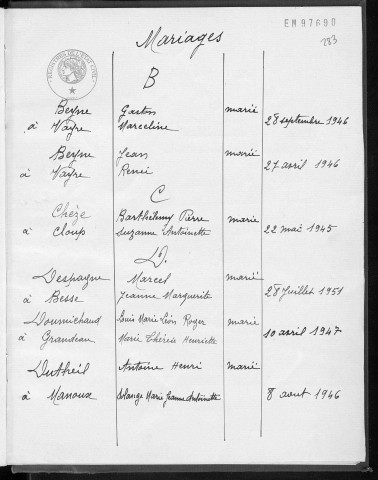 EM 97690
283
Mariages
B
Beyne Gaston marié
à Vayre Marceline 28 septembre 1946
Beyne Jean marié
à Vayre René 27 avril 1946
C
Chèze Barthélemy Pierre marié
à Cloup Suzanne Antoinette 22 mai 1945
D.
Despagne Marcel marié
à Besse Jeanne Marguerite 28 Juillet 1951
Doumichaud Louis Marie Léon Roger marié
à Grandeau Marie Thérèse Henriette 10 avril 1947
Dutheil Antoine Henri marié
à Manoux Solange Marie Jeanne Antoinette 8 aout 1946